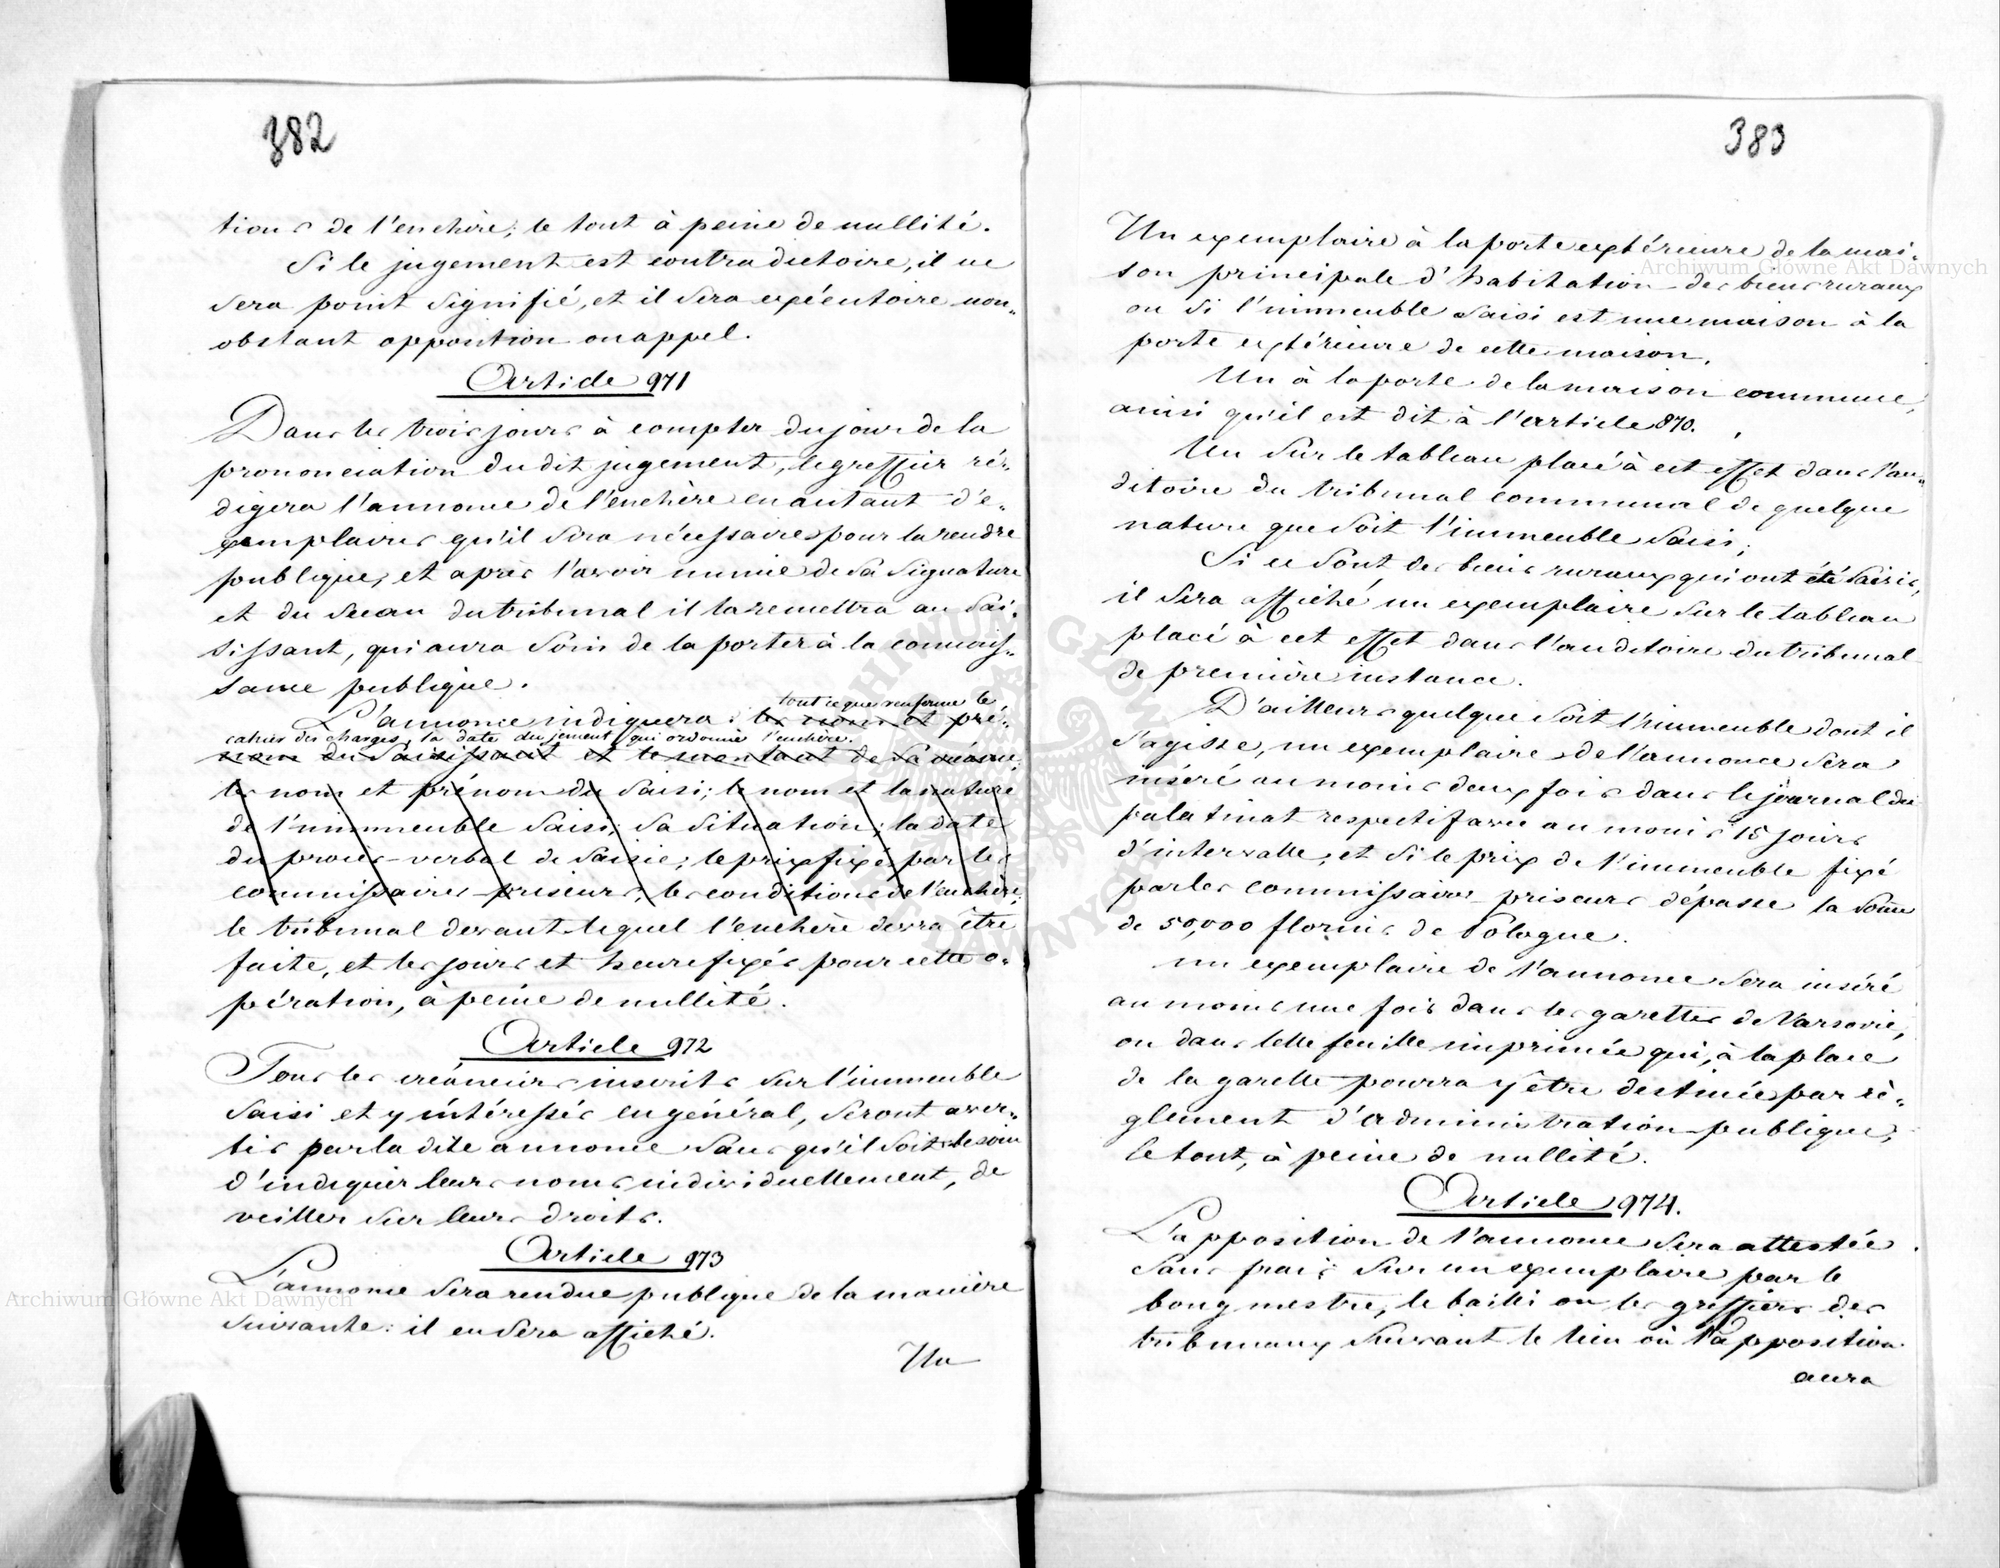 382
tions de l'enchère; le tout à peine de nullité.
Si le jugement est contradictoire, il ne
sera point signifié, et il sera exécutoire non„
obstant opposition ou appel.
Article 971
Dans les trois jours à compter du jour de la
prononciation du dit jugement, le greffier ré„
digera l'annonce de l'enchère en autant d'e„
xemplaires qu'il sera nécessaires pour la rendre
publique, et après l'avoir munie de sa signature
et du sceau du tribunal il la remettra au sai„
sissant, qui aura soin de la porter à la connais„
sance publique.
tout ce que renferme le
L'annonce indiquera: les nom et pré„
cahier des charges, la date du jement qui ordonne l'enchère.
nom du saisissant et le montant de sa créance,
les nom et prénom du saisi; le nom et la nature
de l'immeuble saisi; sa situation; la date
du procès-verbal de saisie; le prix fixé par les
commissaires-priseurs; les conditions de l'enchère;
le tribunal devant lequel l'enchère devra être
faite, et les jours et heure fixés pour cette o„
pération, à peine de nullité.
Article 972
Tous les créanciers inscrits sur l'immeuble
saisi et y intéressés en général, seront aver„
tis par la dite annonce sans qu'il soit besoin
d'indiquer leurs noms individuellement, de
veiller sur leurs droits.
Article 973
L'annonce sera rendue publique de la manière
suivante: il en sera affiché.
Un
383
Un exemplaire à la porte extérieure de la mai„
son principale d'habitation des biens ruraux
ou si l'immeuble saisi est une maison à la
porte extérieure de cette maison.
Un à la porte de la maison commune,
ainsi qu'il est dit à l'article 870.
Un sur le tableau placé à cet effet dans l'au„
ditoire du tribunal communal de quelque
nature que soit l'immeuble saisi;
Si ce sont des biens ruraux qui ont été saisis,
il sera affiché un exemplaire sur le tableau
placé à cet effet dans l'auditoire du tribunal
de première instance.
D'ailleurs quelque soit l'immeuble dont il
s'agisse, un exemplaire de l'annonce sera
inséré au moins deux fois dans le journal du
palatinat respectif avec au moins 15 jours
d'intervalle; et si le prix de l'immeuble fixé
par les commissaires-priseurs dépasse la somme
de 50,000 florins de Pologne.
un exemplaire de l'annonce sera inséré
au moins une fois dans les gazettes de Varsovie,
ou dans telle feuille imprimée qui, à la place
de la gazette pourra y être destinée par rè„
glement d'administration publique,
le tout, à peine de nullité.
Article 974.
L'apposition de l'annonce sera attestée
sans frais sur un exemplaire par le
bourgmestre, le bailli ou les greffiers des
tribunaux suivant le lieu où l'apposition
aura
Archiwum Główne Akt Dawnych
Archiwum Główne Akt Dawnych
ARCHIWUM GŁÓWNE AKT DAWNYCH